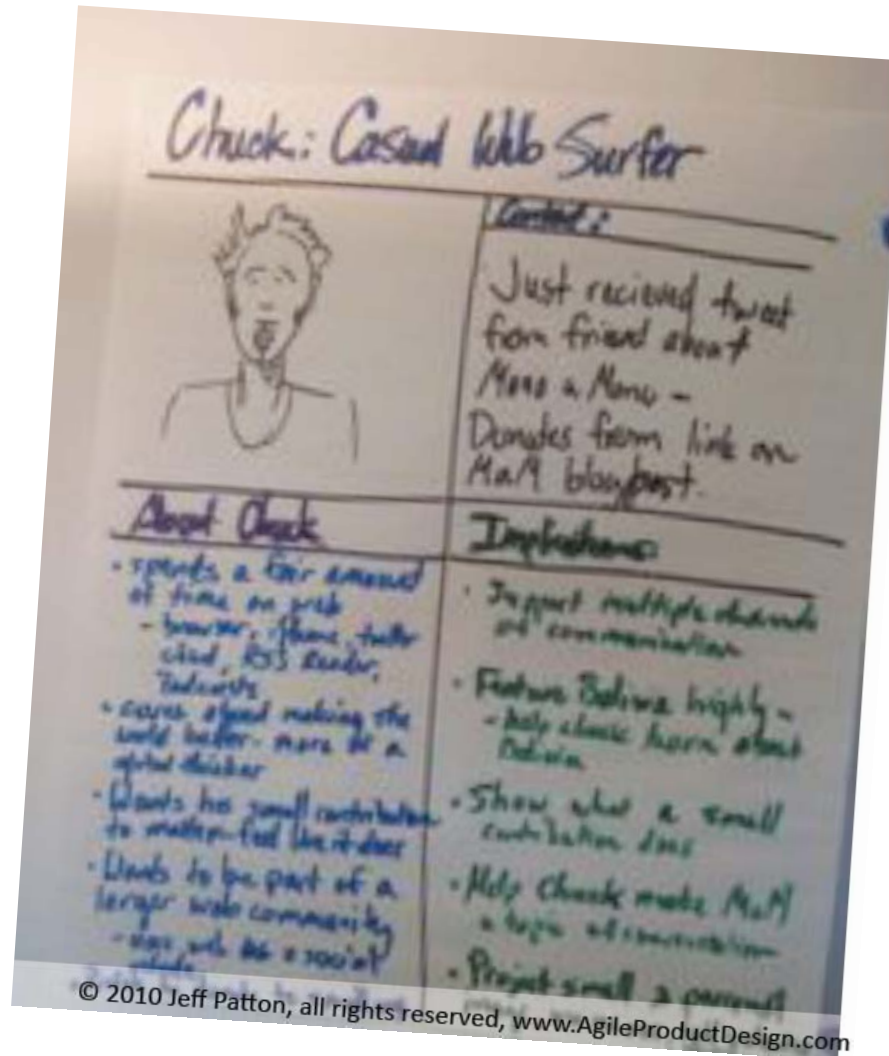 Chuck: Casual Web Surfer
Context:
Just recieved tweet
from friend about
Mano a Mano -
Donates from link on
MaM blogpost.
About Chuck
• spends a fair amount
of time on web
- browser, iphone, twitter
RSS Reader,
• cares about making the
world better - more of a
global thinker
• Wants his small contribution
to matter - feel like it does
• Wants to be part of a
larger web community
- web as a social
Implications:
• Support multiple channels
of communication
• Feature Bolivia highly -
- help chuck learn about
Bolivia
• Show what a small
contribution does
• Help Chuck make MaM
a topic of conversation
• Project small & personal
© 2010 Jeff Patton, all rights reserved, www.AgileProductDesign.com